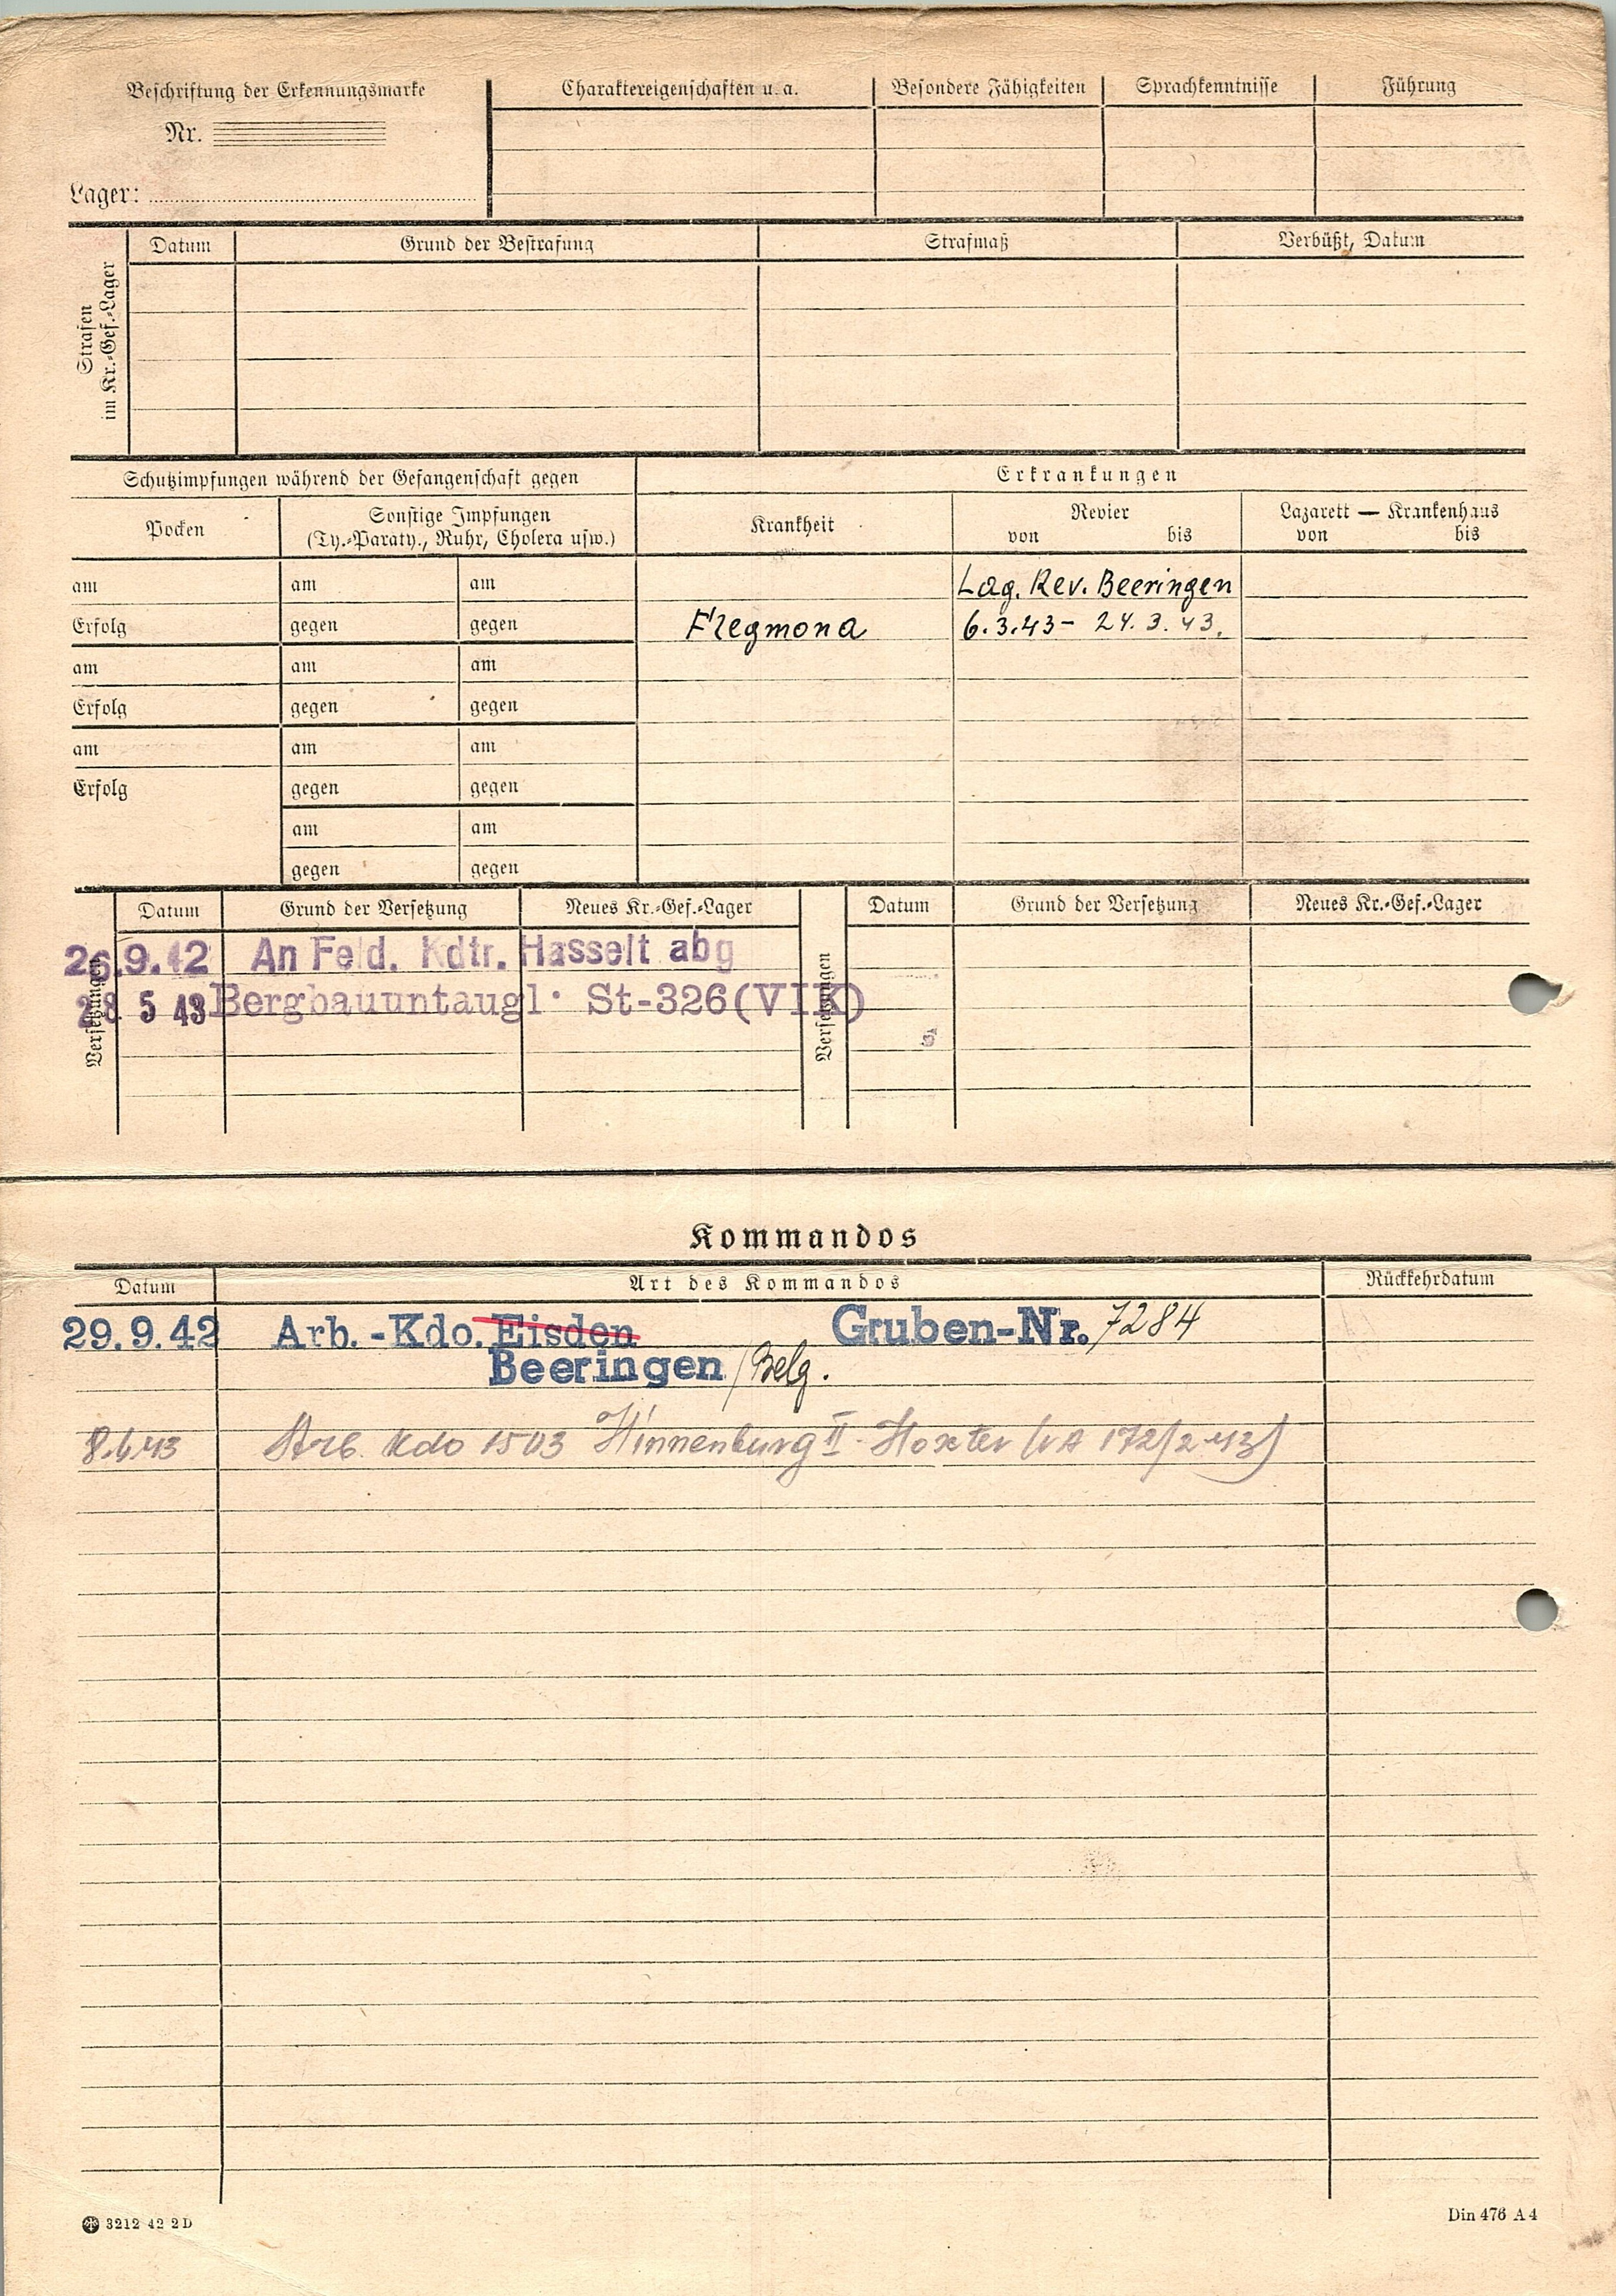 Beschriftung der Erkennungsmarke
Nr.
Lager:
Charaktereigenschaften u. a.
Besondere Fähigkeiten
Sprachkenntnisse
Führung
Strafen im Kr.-Gef.-Lager
Datum
Grund der Bestrafung
Strafmaß
Verbüßt, Datum
Schutzimpfungen während der Gefangenschaft gegen
Erkrankungen
Pocken
Sonstige Impfungen
(Ty.-Paraty., Ruhr, Cholera usw.)
Krankheit
Revier
von bis
Lazarett — Krankenhaus
von bis
am am am
Lag. Rev. Beeringen
Erfolg gegen gegen
Flegmona 6.3.43- 24.3.43.
am am am
Erfolg gegen gegen
am am am
Erfolg gegen gegen
am am
gegen gegen
Versetzungen
Datum Grund der Versetzung Neues Kr.-Gef.-Lager
Versetzungen
Datum Grund der Versetzung Neues Kr.-Gef.-Lager
26.9.42 An Feld. Kdtr. Hasselt abg
28 5 43 Bergbauuntaugl. St-326(VIK)
Kommandos
Datum Art des Kommandos Rückkehrdatum
29.9.42 Arb.-Kdo. Eisden Gruben-Nr. 7284
Beeringen/Belg.
8.6.43 Arb. Kdo 1503 Hinnenburg II - Höxter 172/2 43)
3212 42 2D
Din 476 A4